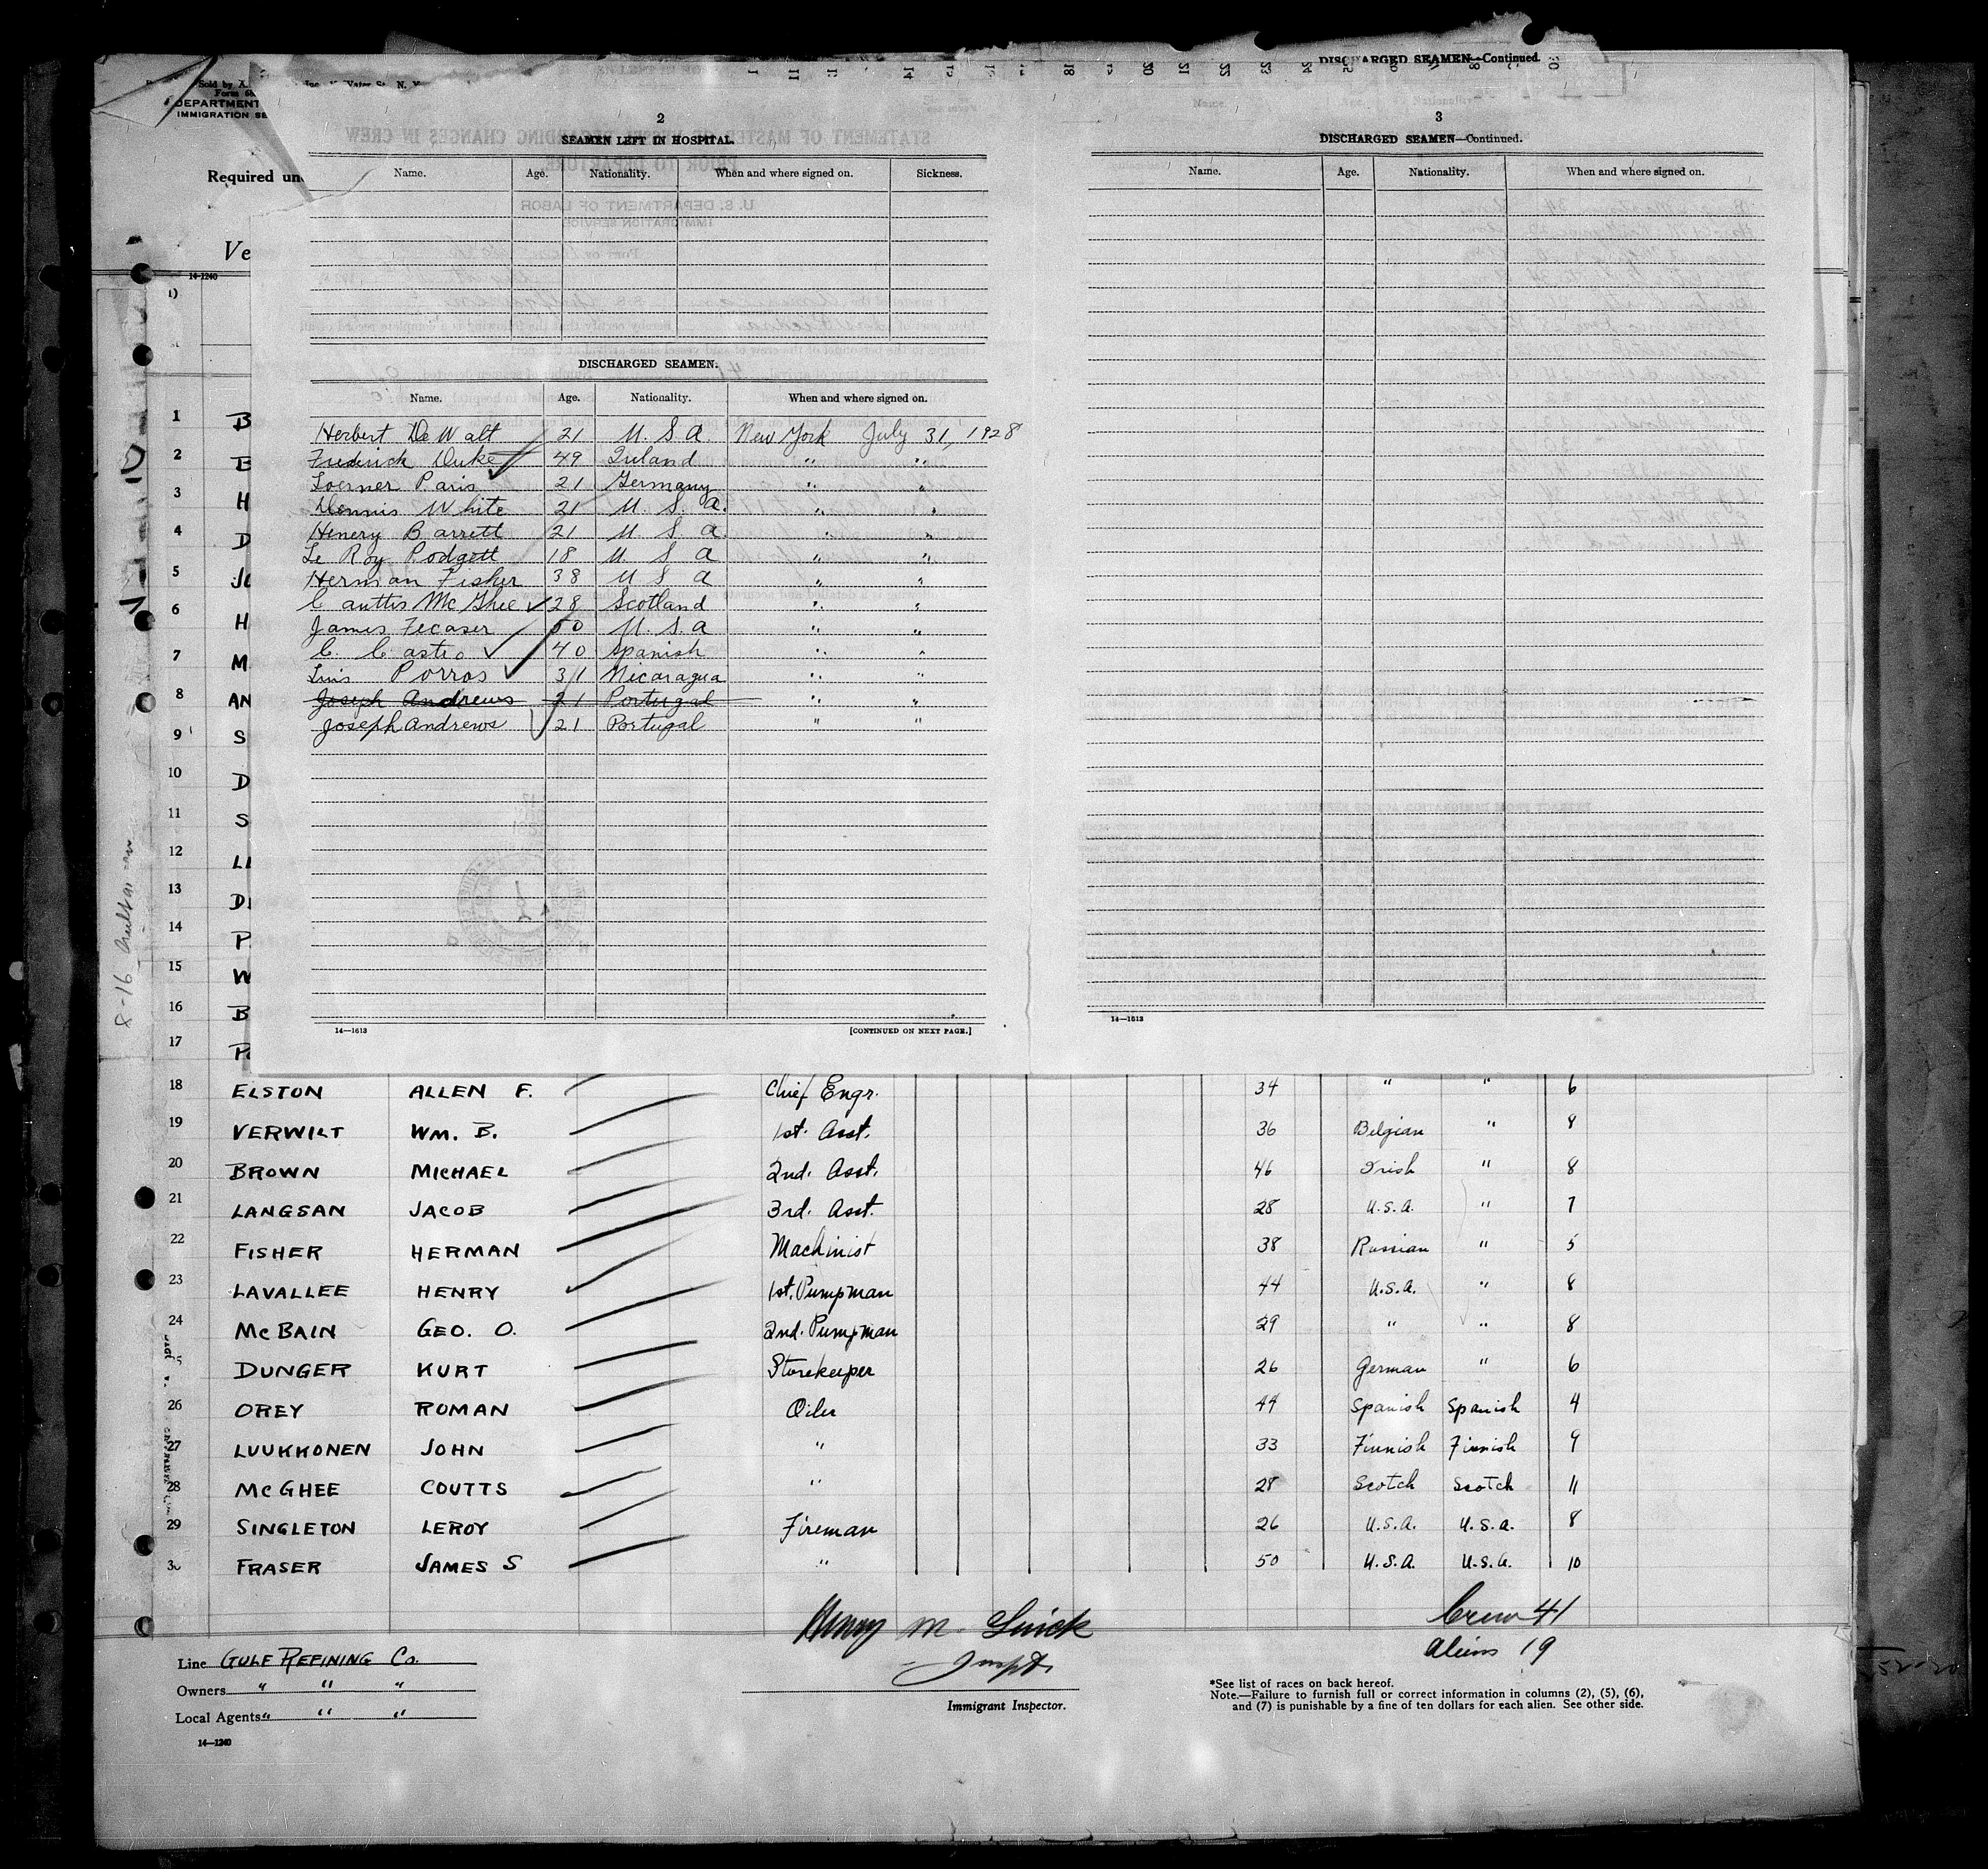 Sold by A.
Form 68
DEPARTMENT
IMMIGRATION SE
Required un
Ve
14-1240
DISCHARGED SEAMEN—Continued.
2
SEAMEN LEFT IN HOSPITAL.
Name. Age. Nationality. When and where signed on. Sickness.
DISCHARGED SEAMEN.
Name. Age. Nationality. When and where signed on.
Herbert DeWalt 21 U.S.A. New York July 31, 1928
Frederick Duke 49 Ireland " "
Loerner Paris 21 Germany " "
Dennis White 21 U.S.A. " "
Henery Barrett 21 U S A " "
Le Roy Podgett 18 U S A " "
Herman Fisher 38 U S A " "
C anttis McGhee 28 Scotland " "
James Fecaser 50 U.S.A " "
C. Castro 40 Spanish " "
Luis Porras 31 Nicaragua " "
Joseph Andrews 21 Portugal " "
Joseph Andrews 21 Portugal " "
14—1613
[CONTINUED ON NEXT PAGE.]
3
DISCHARGED SEAMEN—Continued.
Name. Age. Nationality. When and where signed on.
14—1613
1 B
2 E
3 H
4 D
5 JO
6 H
7 M
8 AN
9 S
10 D
11 S
12 LI
13 DI
14 P
15 W
16 B
17 Po
18 ELSTON ALLEN F. Chief Engr. 34 " " 6
19 VERWILT WM. B. 1st. Asst. 36 Belgian " 8
20 BROWN MICHAEL 2nd. Asst. 46 Irish " 8
21 LANGSAN JACOB 3rd. Asst. 28 U.S.A. " 7
22 FISHER HERMAN Machinist 38 Russian " 5
23 LAVALLEE HENRY 1st. Pumpman 44 U.S.A. " 8
24 McBAIN GEO. O. 2nd. Pumpman 29 " " 8
5 DUNGER KURT Storekeeper 26 German " 6
26 OREY ROMAN Oiler 44 Spanish Spanish 4
27 LUUKKONEN JOHN " 33 Finnish Finnish 9
28 McGHEE COUTTS " 28 Scotch Scotch 11
29 SINGLETON LEROY Fireman 26 U.S.A. U.S.A. 8
30 FRASER JAMES S " 50 U.S.A. U.S.A. 10
Henry M. Quick
Inspt.
Immigrant Inspector.
Crew 41
Aliens 19
Line GULF REFINING Co.
Owners " " "
Local Agents " " "
14—1240
*See list of races on back hereof.
Note.—Failure to furnish full or correct information in columns (2), (5), (6),
and (7) is punishable by a fine of ten dollars for each alien. See other side.